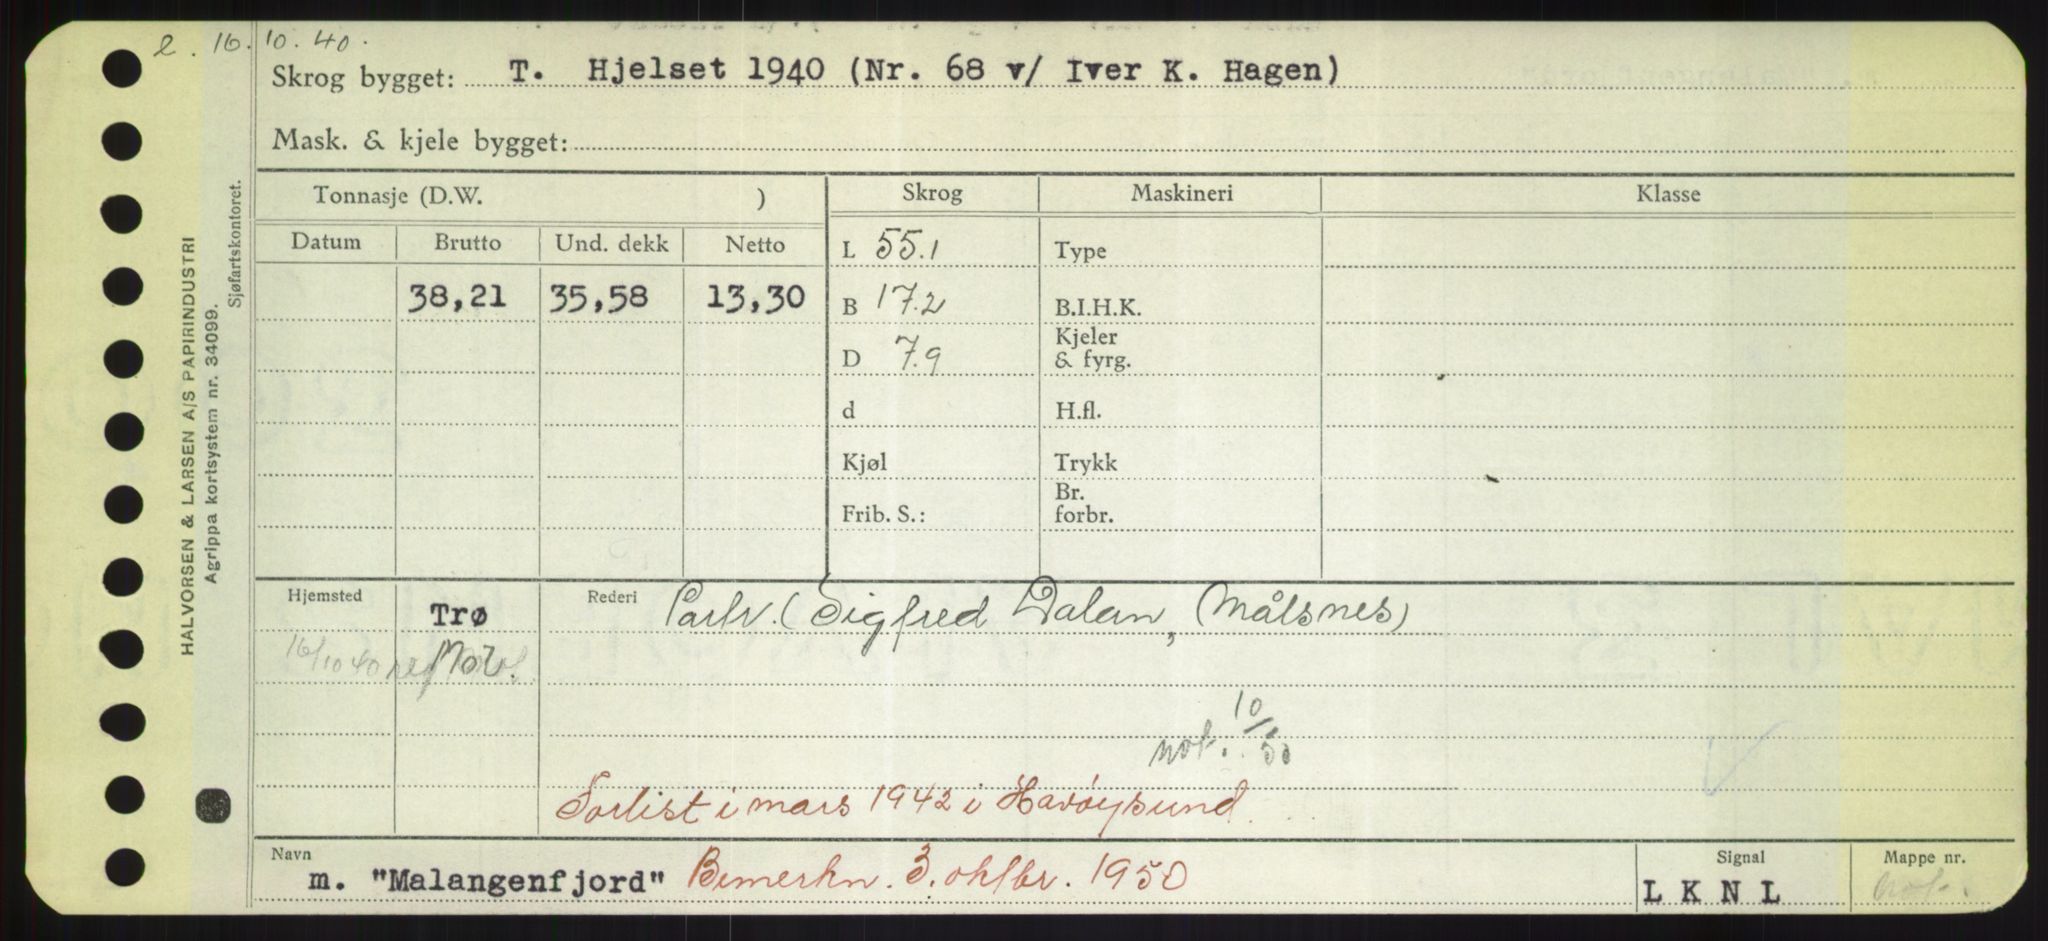 2. 16. 10. 40.
Skrog bygget: T. Hjelset 1940 (Nr. 68 v/ Iver K. Hagen)
Mask. & kjele bygget:
Tonnasje (D.W. ) Skrog Maskineri Klasse
Datum Brutto Und. dekk Netto L 55.1 Type
38,21 35,58 13,30 B 17.2 B.I.H.K.
D 7.9 Kjeler & fyrg.
d H.fl.
Kjøl Trykk
Frib. S.: Br. forbr.
Hjemsted Trø Rederi Partr. (Sigfred Dalen, Målsnes)
16/10 40
not. 10/50
Forlist i mars 1942 i Havøysund
Navn m. "Malangenfjord" Bemerkn. 3. oktbr. 1950 Signal LKNL Mappe nr.
HALVORSEN & LARSEN A/S PAPIRINDUSTRI
Agrippa kortsystem nr. 34099.
Sjøfartskontoret.